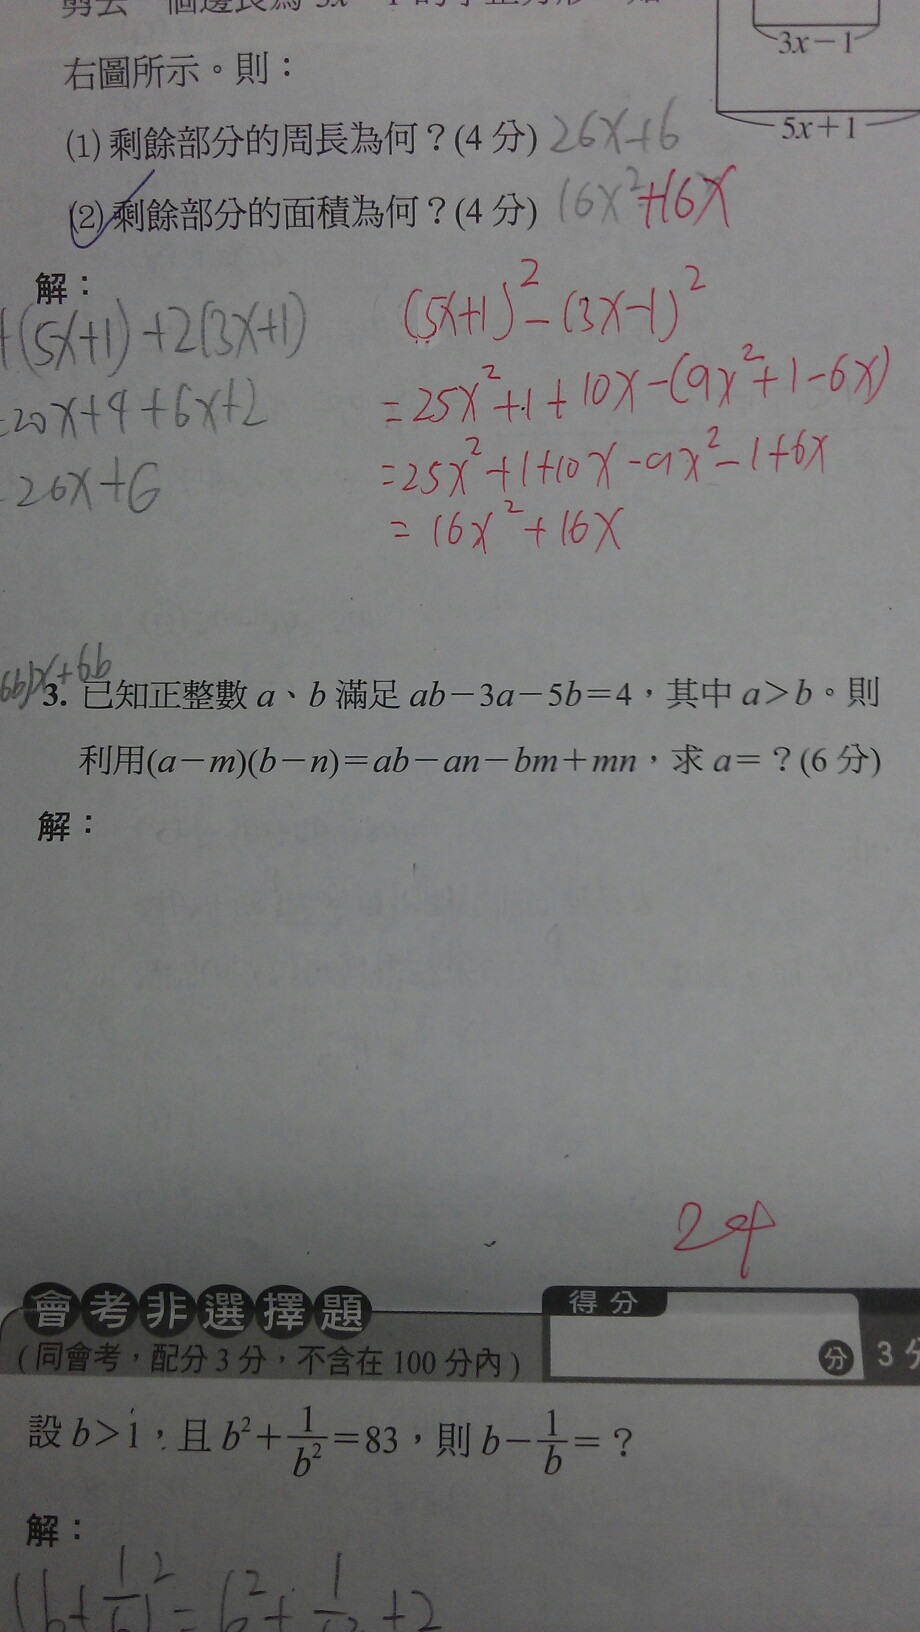 3x－1
右圖所示。則：
5x＋1
(1) 剩餘部分的周長為何？(4 分) 26x+6
(2) 剩餘部分的面積為何？(4 分) 16x²+16x
解：
(5x+1)+2(3x+1)
=20x+4+6x+2
26x+6
(5x+1)²-(3x-1)²
=25x²+1+10x-(9x²+1-6x)
=25x²+1+10x-9x²-1+6x
=16x²+16x
6b)x+6b
3. 已知正整數 a、b 滿足 ab－3a－5b＝4，其中 a＞b。則
利用(a－m)(b－n)＝ab－an－bm＋mn，求 a＝？(6 分)
解：
24
會考非選擇題
得分
(同會考，配分 3 分，不含在 100 分內)
分 3 分
設 b＞1，且 b²＋1/b²＝83，則 b－1/b＝？
解：
(b+1/b)²=b²+1/b²+2